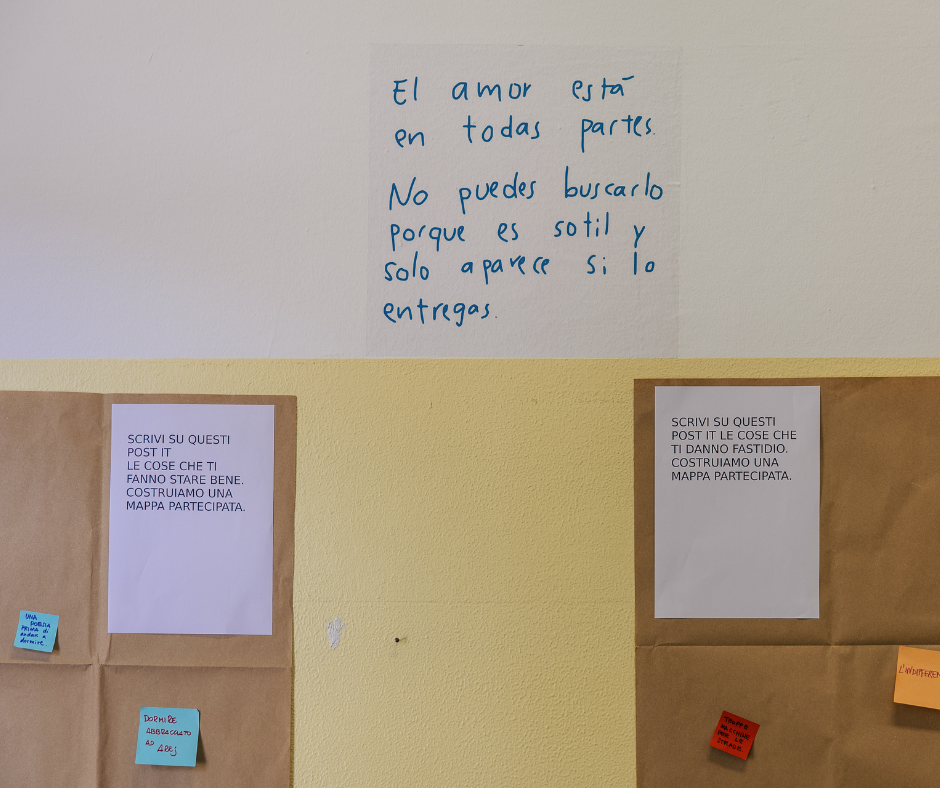 El amor está
en todas partes.
No puedes buscarlo
porque es sotil y
solo aparece si lo
entregas.
SCRIVI SU QUESTI
POST IT
LE COSE CHE TI
FANNO STARE BENE.
COSTRUIAMO UNA
MAPPA PARTECIPATA.
SCRIVI SU QUESTI
POST IT LE COSE CHE
TI DANNO FASTIDIO.
COSTRUIAMO UNA
MAPPA PARTECIPATA.
UNA
POESIA
PRIMA DI
andar a
dormire
DORMIRE
ABBRACCIATO
AD
TROPPE
MACCHINE
PER LE
STRADE.
L'INDIFFEREN